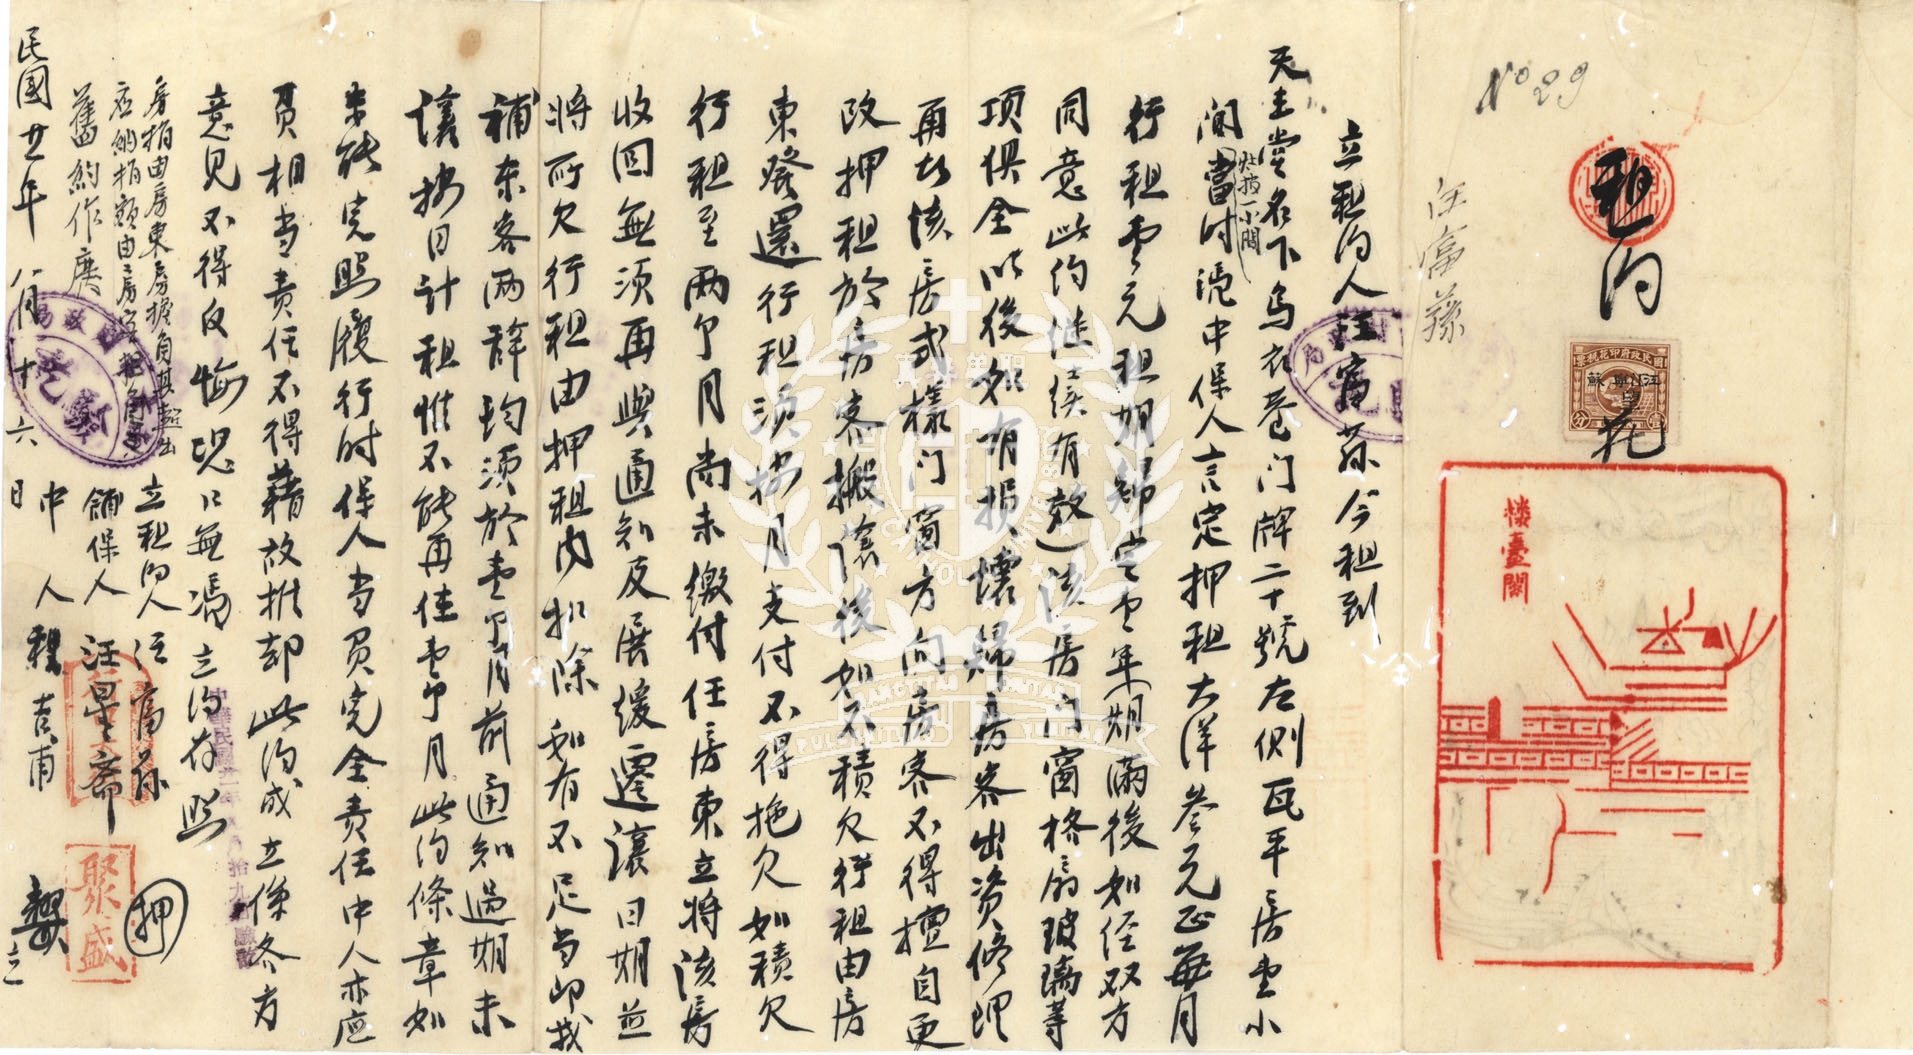 No 29
租約
汪富蓀
國民政府印花稅票
江寧
蘇
花
樓臺閣
立租約人汪富蓀今租到
天主堂名下烏衣巷门牌二十號左側瓦平房壹小
間當时凴中保人言定押租大洋叁元正每月
此指一小間
行租壹元租期歸定壹年(期滿後如经双方
同意此约继续有效)该房门窗格扇玻璃等
項俱全以後如有損壞歸房客出资修理
再者该房式樣门窗方向房客不得擅自更
改押租於房客搬讓後如不積欠行租由房
東發還行租须按月支付不得拖欠如積欠
行租至两个月尚未缴付任房東立將该房
收回無须再與通知及展缓遷讓日期並
將所欠行租由押租内扣除如有不足当即找
補东客两辞均须於壹个月前通知過期未
讓按日計租惟不能再住壹个月此约條章如
未能完照履行时保人当負完全責任中人亦應
負相当責任不得藉故推却此约成立後各方
意見不得反悔恐口無凴立约存照
立租约人汪富蓀 押
舖保人汪星齋
聚盛
中人程吉甫
房捐由房東房擔負其超出
應納捐額由房客担負
舊約作廢
民國廿二年八月十六日